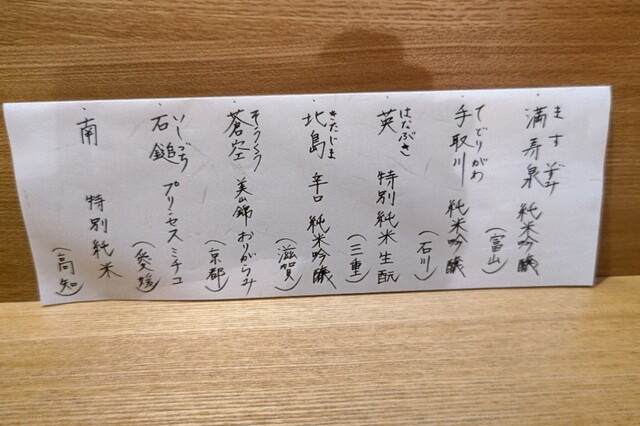 ますいずみ
満寿泉 純米吟醸
(富山)
てどりがわ
手取川 純米吟醸
(石川)
はなぶさ
英 特別純米生酛
(三重)
きたじま
北島 辛口 純米吟醸
(滋賀)
そうくう
蒼空 美山錦 おりがらみ
(京都)
いしづち
石鎚 プリンセスミチコ
(愛媛)
南 特別純米
(高知)